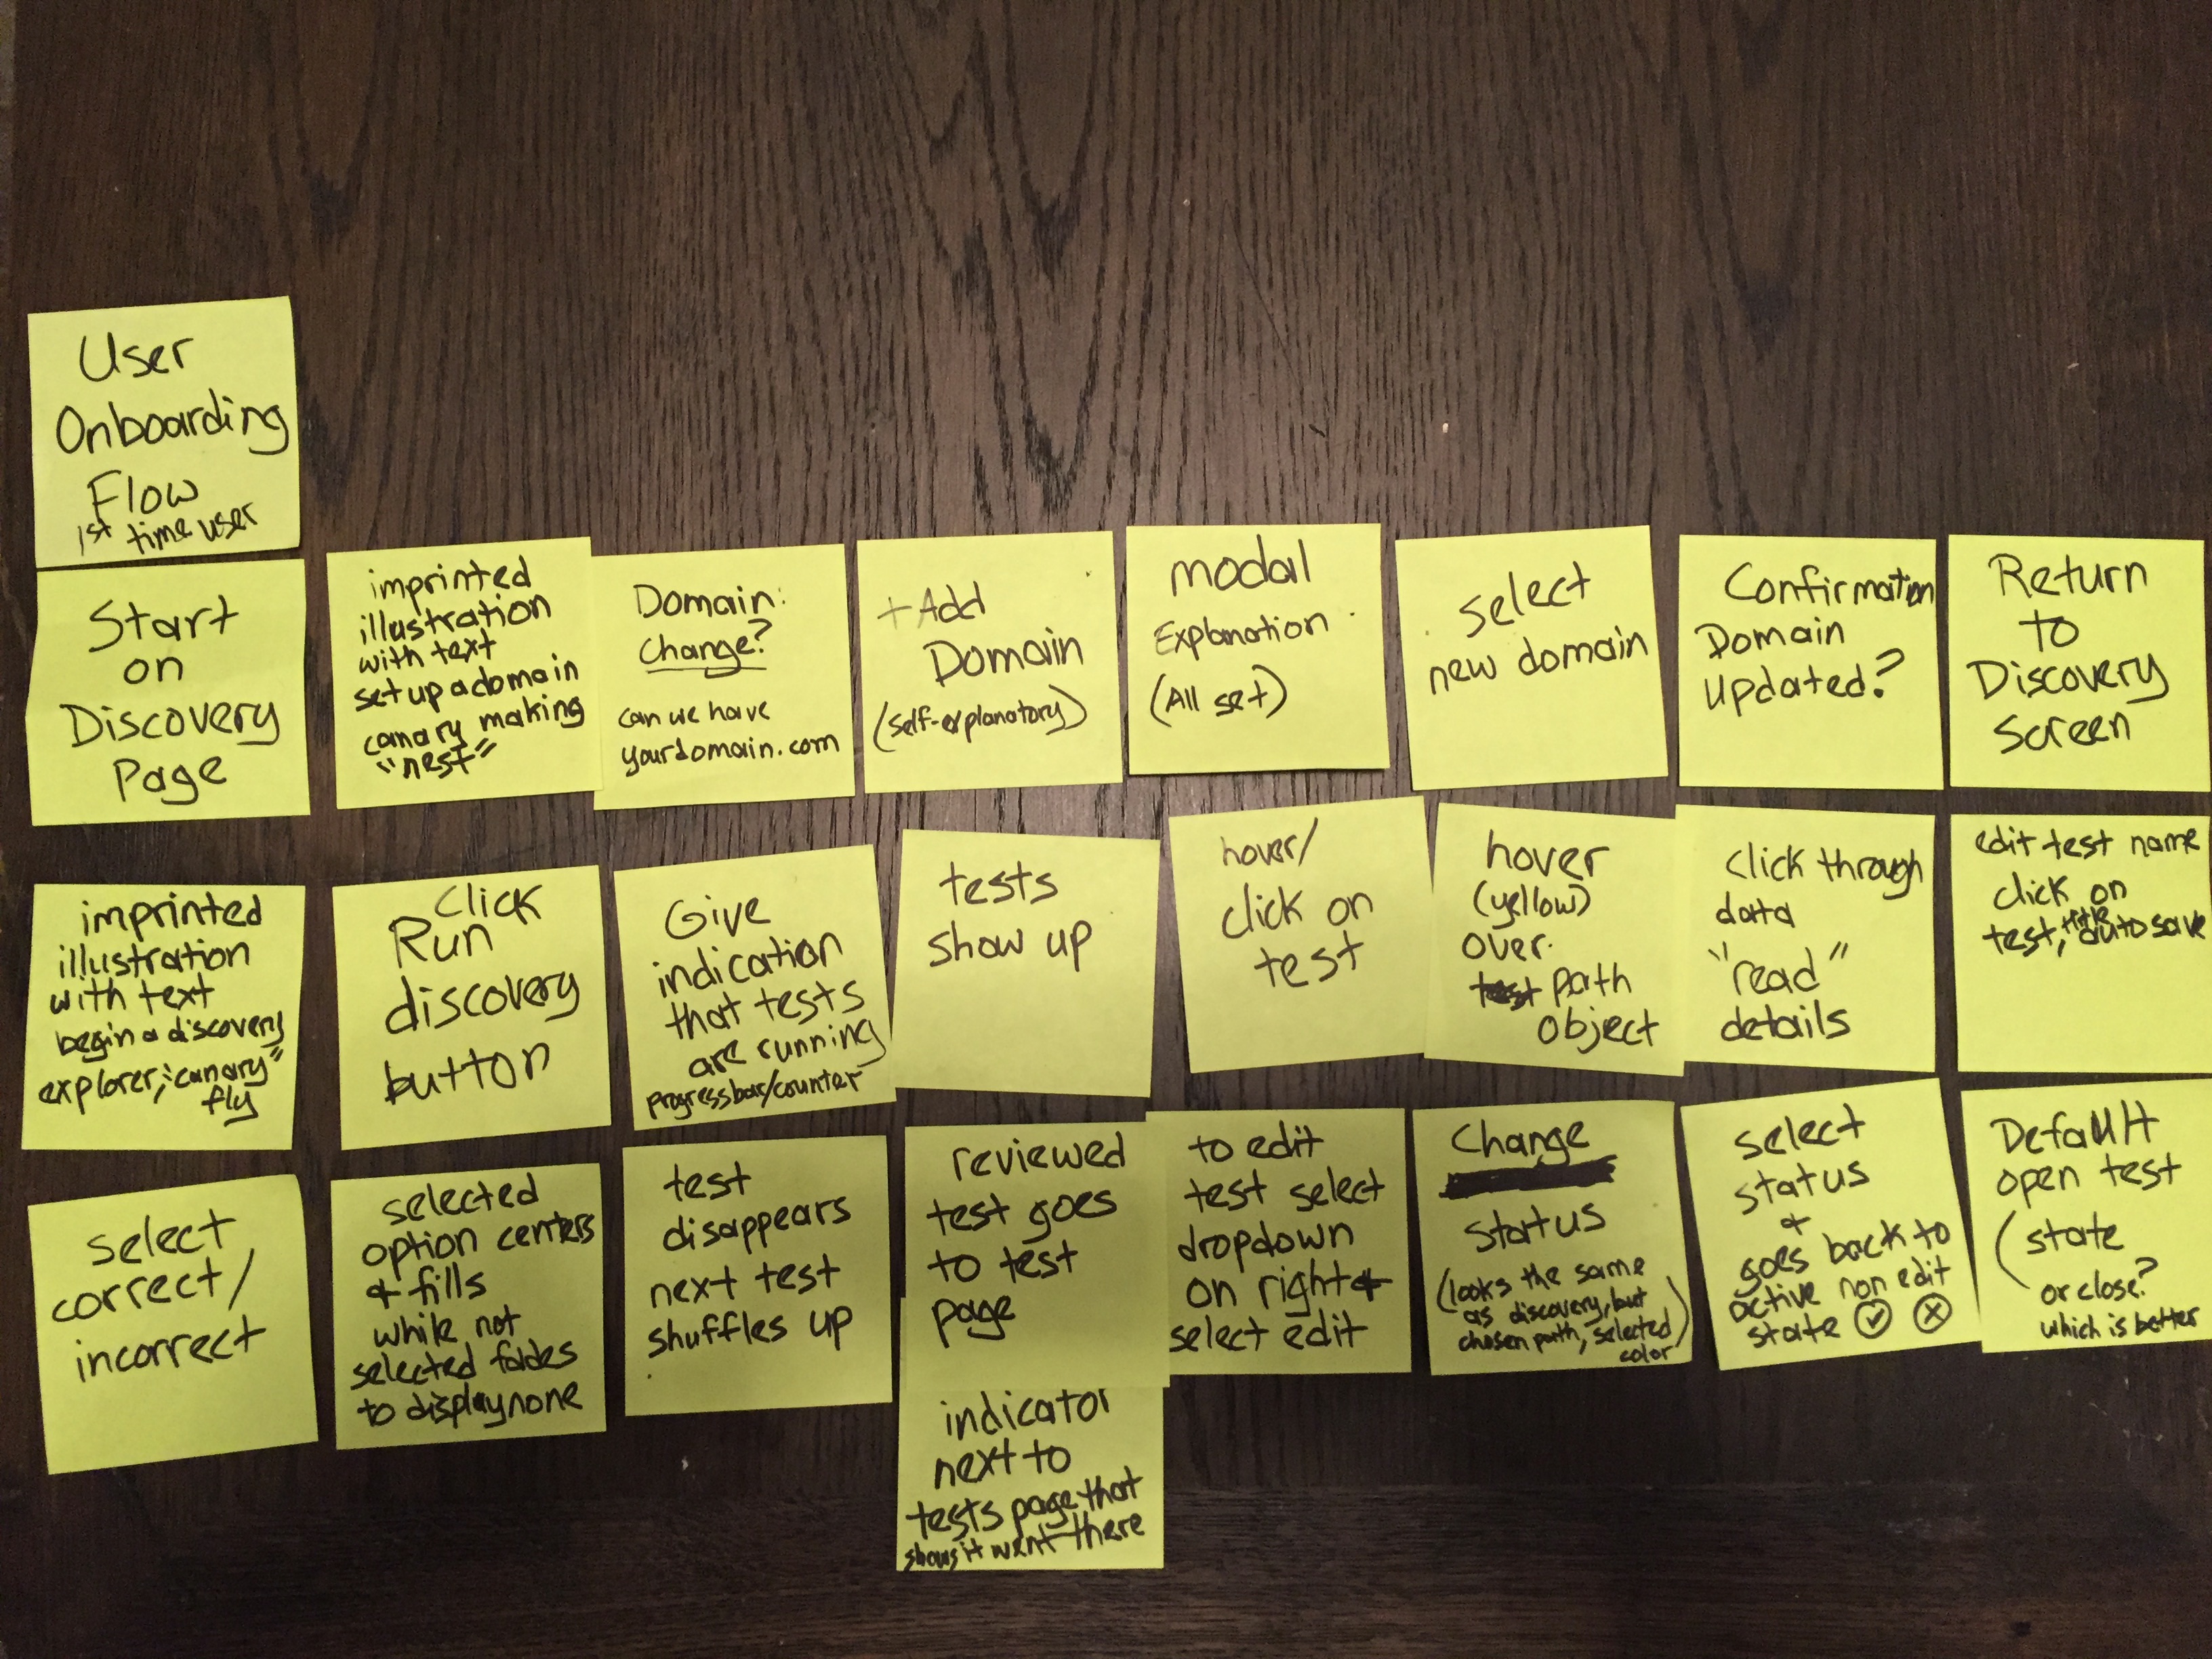 User
Onboarding
Flow
1st time user
Start
on
Discovery
Page
imprinted
illustration
with text
set up a domain
canary making
"nest"
Domain:
Change?
can we have
yourdomain.com
+Add
Domain
(self-explanatory)
modal
Explanation
(All set)
select
new domain
Confirmation
Domain
Updated?
Return
to
Discovery
Screen
imprinted
illustration
with text
begin a discovery
explorer, "canary"
fly
Click
Run
discovery
button
Give
indication
that tests
are running
progressbar/counter
tests
show up
hover/
click on
test
hover
(yellow)
over
path
object
Click through
data
"read"
details
edit test name
click on
title
test, autosave
select
correct/
incorrect
selected
option centers
& fills
while not
selected fades
to displaynone
test
disappears
next test
shuffles up
reviewed
test goes
to test
page
indicator
next to
tests page that
shows it went there
to edit
test select
dropdown
on right &
select edit
Change
status
(looks the same
as discovery, but
chosen path, selected)
color
select
status
&
goes back to
active non edit
state ✓ ✗
Default
open test
(state
or close?
which is better